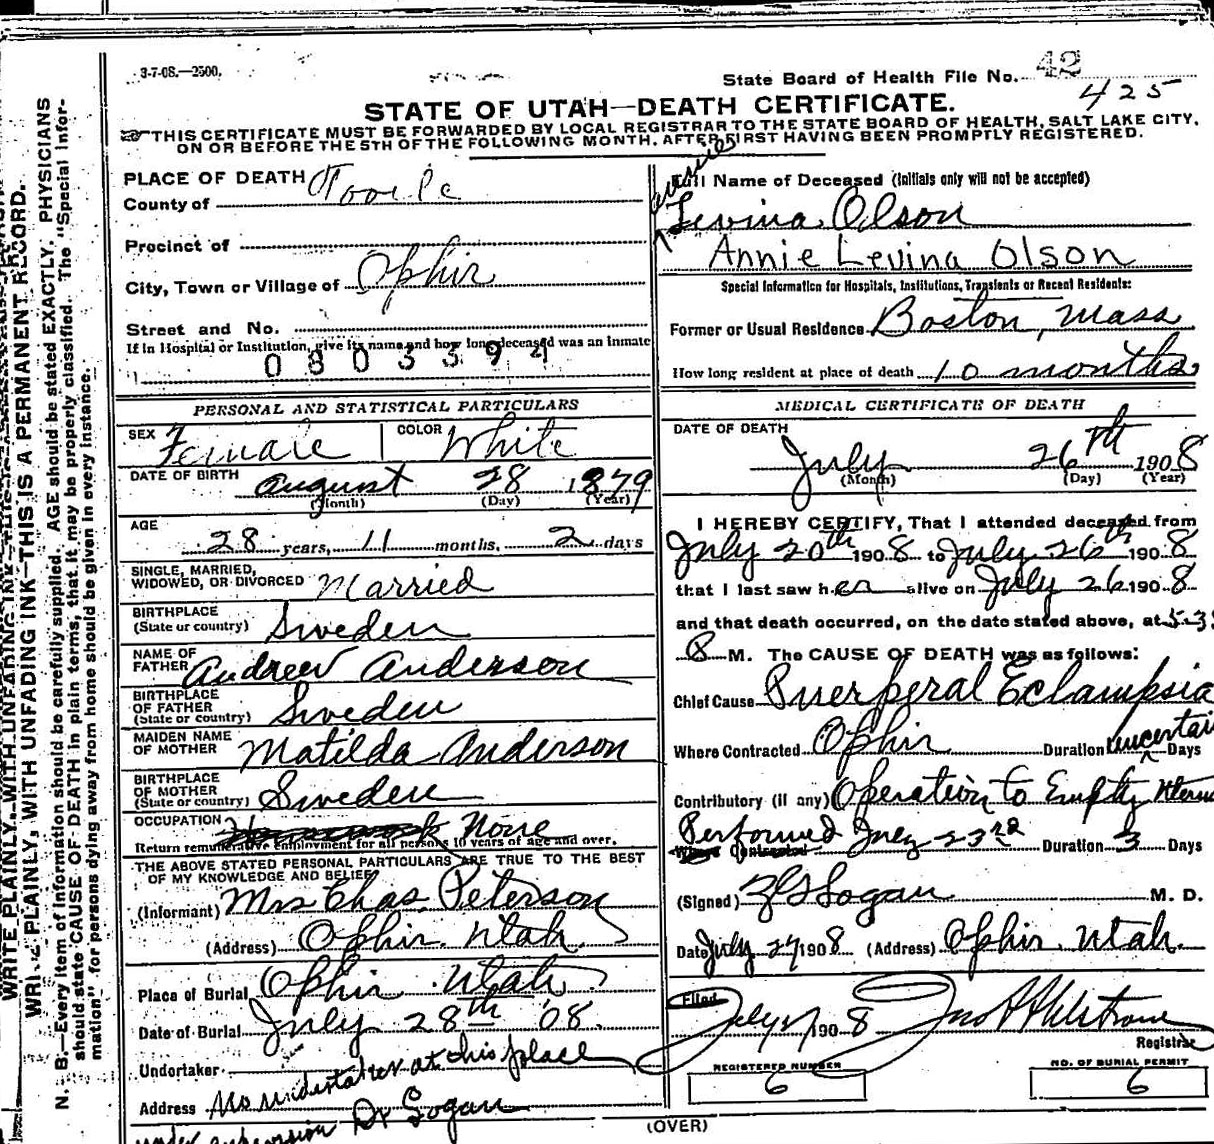 3-7-08.—2500.
State Board of Health File No. 42
425
STATE OF UTAH—DEATH CERTIFICATE.
THIS CERTIFICATE MUST BE FORWARDED BY LOCAL REGISTRAR TO THE STATE BOARD OF HEALTH, SALT LAKE CITY,
ON OR BEFORE THE 5TH OF THE FOLLOWING MONTH, AFTER FIRST HAVING BEEN PROMPTLY REGISTERED.
WRITE PLAINLY, WITH UNFADING INK—THIS IS A PERMANENT RECORD.
N. B.—Every item of information should be carefully supplied. AGE should be stated EXACTLY. PHYSICIANS
should state CAUSE OF DEATH in plain terms, that it may be properly classified. The "Special Infor-
mation" for persons dying away from home should be given in every instance.
PLACE OF DEATH
County of Tooele
Precinct of
City, Town or Village of Ophir
Street and No.
If in Hospital or Institution, give its name and how long deceased was an inmate
0803394
PERSONAL AND STATISTICAL PARTICULARS
SEX Female COLOR White
DATE OF BIRTH August 28 1879
(Month) (Day) (Year)
AGE
28 years, 11 months, 2 days
SINGLE, MARRIED,
WIDOWED, OR DIVORCED Married
BIRTHPLACE
(State or country) Sweden
NAME OF
FATHER Andrew Anderson
BIRTHPLACE
OF FATHER
(State or country) Sweden
MAIDEN NAME
OF MOTHER Matilda Anderson
BIRTHPLACE
OF MOTHER
(State or country) Sweden
OCCUPATION None
Return remunerative employment for all persons 10 years of age and over.
THE ABOVE STATED PERSONAL PARTICULARS ARE TRUE TO THE BEST
OF MY KNOWLEDGE AND BELIEF
(Informant) Mrs Chas. Peterson
(Address) Ophir. Utah.
Place of Burial Ophir Utah
Date of Burial July 28th '08.
Undertaker
Address No undertaker at this place
under supervision Dr Logan
Full Name of Deceased (Initials only will not be accepted)
Levina Olson
Annie Levina Olson
Special Information for Hospitals, Institutions, Transients or Recent Residents:
Former or Usual Residence Boston, Mass
How long resident at place of death 10 months
MEDICAL CERTIFICATE OF DEATH
DATE OF DEATH
July 26th 1908
(Month) (Day) (Year)
I HEREBY CERTIFY, That I attended deceased from
July 20th 1908 to July 26th 1908
that I last saw her alive on July 26 1908
and that death occurred, on the date stated above, at 5-3
M. The CAUSE OF DEATH was as follows:
Chief Cause Puerperal Eclampsia
Where Contracted Ophir Duration uncertain Days
Contributory (if any) Operation to Empty Uterus
Performed July 23rd
Where Contracted Duration 3 Days
(Signed) Logan M. D.
Date July 27 1908 (Address) Ophir. Utah.
Filed July 27 1908 Jno Ahlstrom
Registrar
REGISTERED NUMBER
6
NO. OF BURIAL PERMIT
6
(OVER)